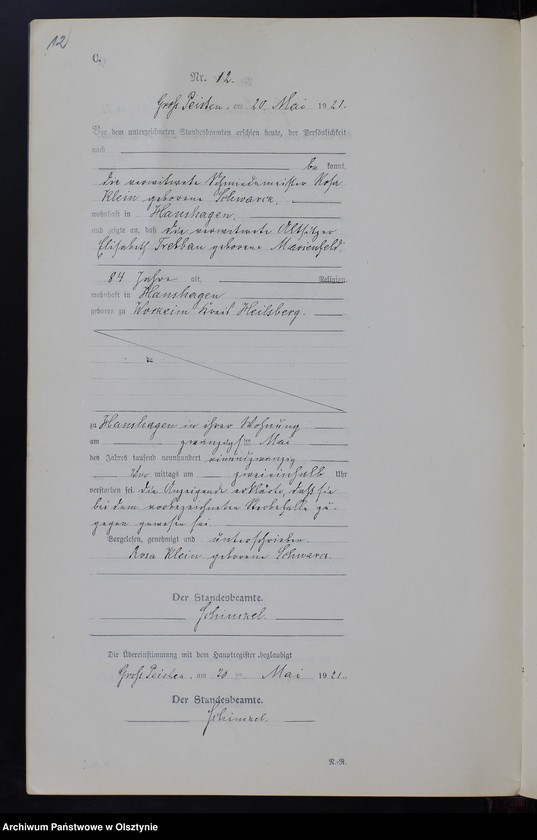 12
C.
Nr. 12.
Groß Peisten, am 20 Mai 1921.
Vor dem unterzeichneten Standesbeamten erschien heute, der Persönlichkeit
nach
be kannt,
die verwitwete Schmiedemeister Rosa
Klein geborene Schwarz,
wohnhaft in Hanshagen,
und zeigte an, daß die verwitwete Altsitzer
Elisabeth geborene Marienfeld,
84 Jahre alt, Religion,
wohnhaft in Hanshagen
geboren zu Workeim Kreis Heilsberg.
zu Hanshagen in ihrer Wohnung
am zwanzigsten Mai
des Jahres tausend neunhundert einundzwanzig
Vor mittags um zweieinhalb Uhr
verstorben sei. Die Anzeigende erklärte, daß sie
bei dem vorbezeichneten Sterbefalle zu-
gegen gewesen sei.
Vorgelesen, genehmigt und unterschrieben.
Rosa Klein geborene Schwarz
Der Standesbeamte.
Schimzel.
Die Übereinstimmung mit dem Hauptregister beglaubigt
Groß Peisten, am 20 ten Mai 1921.
Der Standesbeamte.
Schimzel.
N.-R.
Archiwum Państwowe w Olsztynie